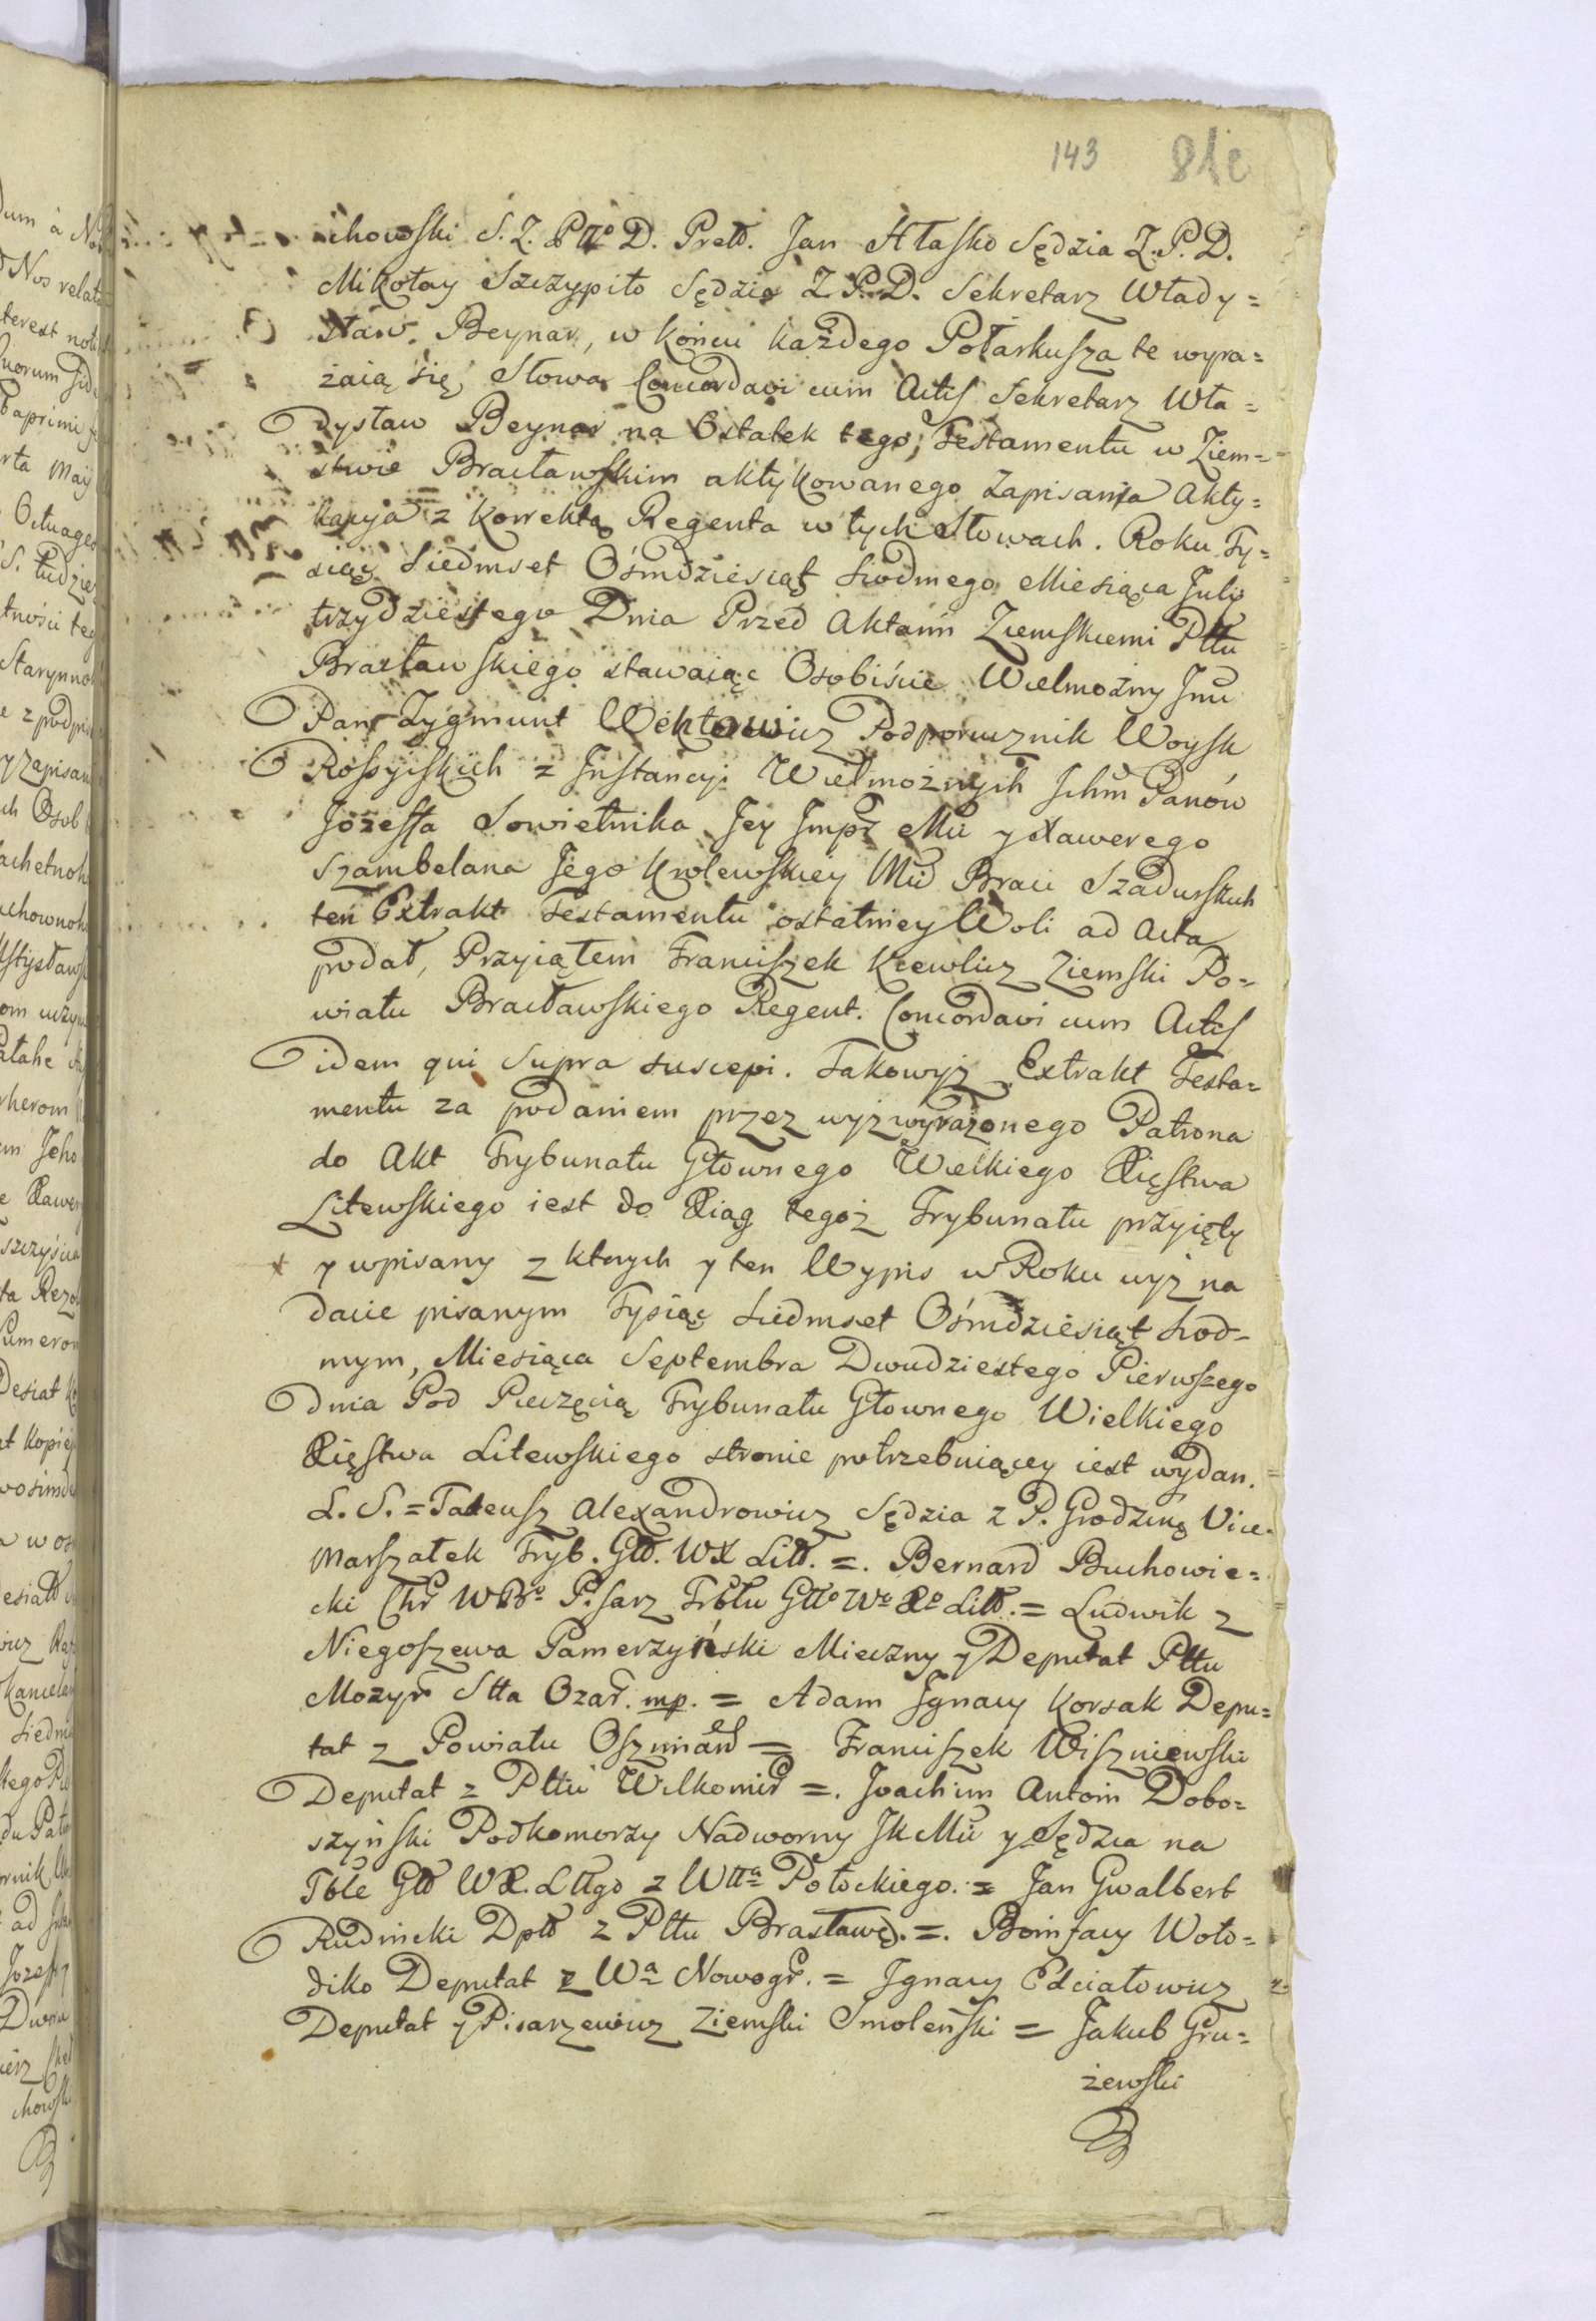 143 81c
chowski S. Z. Ptto D. Pretd. Jan Hłasko Sędzia Z. P. D.
Mikołay Szczypiło Sędzia Z. P. D. Sekretarz Włady=
sław Beynar, w końcu każdego Połarkusza te wyra=
żaią się, Słowa Concordavi cum Actis Sekretarz Wła=
dysław Beynar na Ostatek tego, Testamentu w Ziem=
stwie Bracławskim aktykowanego zapisania Akty=
kacya z korrektą Regenta w tych Słowach. Roku Ty=
siąc Siedmset Ośmdziesiąt Siodmego Miesiąca July
trzydziestego Dnia Przed Aktami Ziemskiemi Pttu
Bracławskiego stawaiąc Osobiście Wielmożny Jmć
Pan Zygmunt Wektowicz Podporucznik Woysk
Rossyiskich z Instancyi Wielmożnych Ichm Panów
Józeffa Sowietnika Jey Impr Mci y Xawerego
Szambelana Jego Krolewskiey Mci Braci Szadurskich
ten Extrakt Testamentu ostatniey Woli ad Acta
podał, Przyiąłem Franciszek Kiewlicz Ziemski Po=
wiatu Bracławskiego Regent. Concordavi cum Actis
idem qui Supra suscepi. Takowyż Extrakt Testa=
mentu za podaniem przez wyż wyrażonego Patrona
do Akt Trybunału Głownego Wielkiego Xięstwa
Litewskiego iest do Xiąg tegoż Trybunału przyięty
y wpisany z ktorych y ten Wypis w Roku wyż na
dacie pisanym Tysiąc Siedmset Ośmdziesiąt Siod=
mym, Miesiąca Septembra Dwudziestego Pierwszego
dnia Pod Pieczęcią Trybunału Głownego Wielkiego
Xięstwa Litewskiego stronie potrzebuiącey iest wydan.
L. S. = Tadeusz Alexandrowicz Sędzia z P. Grodzieńg Vice
Marszałek Tryb. Głd. W X Litt. =. Bernard Buchowie=
cki Pisarz Trbłu Gtto Wo Xo Litt. = Ludwik z
Niegoszewa Pamerzyński Mieczny y Deputat Pttu
Mozyr Stta Ozar. mp. = Adam Ignacy Korsak Depu=
tat z Powiatu Oszmian = Franciszek Wiszniewski
Deputat z Pttu Wilkomir =. Joachim Antoni Dobo=
szyński Podkomorzy Nadworny JK Mci y Sędzia na
Tble Głd WX. Lttgo z Wtta Połockiego. = Jan Gwalbert
Rudnicki Dptt z Pttu Brasławg. =. Bonifacy Woło=
dko Deputat z Wa Nowogr. = Ignacy Edciałowicz
Deputat y Pisarzewicz Ziemski Smoleński = Jakub Gru=
żewski